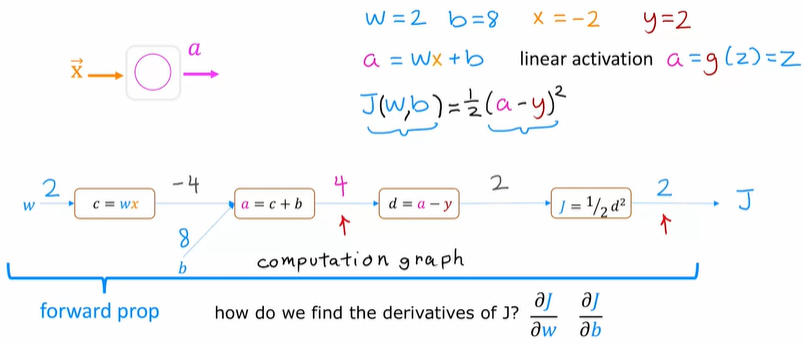 w = 2 b = 8 x = -2 y = 2
a
x⃗
a = wx + b linear activation a = g(z) = z
J(w,b) = 1/2 (a - y)²
w 2 c = wx -4 a = c + b 4 d = a - y 2 J = 1/2 d² 2 J
↑ ↑
8
b
computation graph
forward prop
how do we find the derivatives of J? ∂J/∂w ∂J/∂b